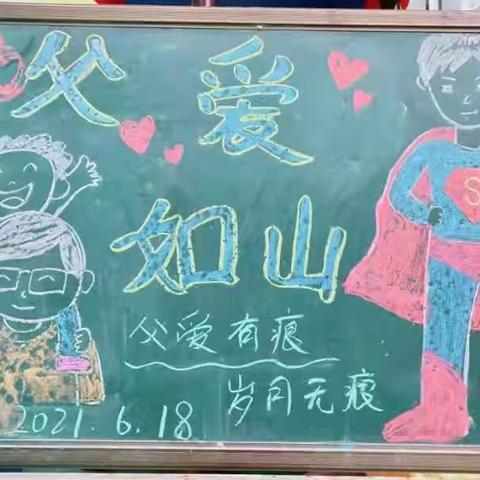 父爱
如山
父爱有痕
岁月无痕
2021.6.18
S